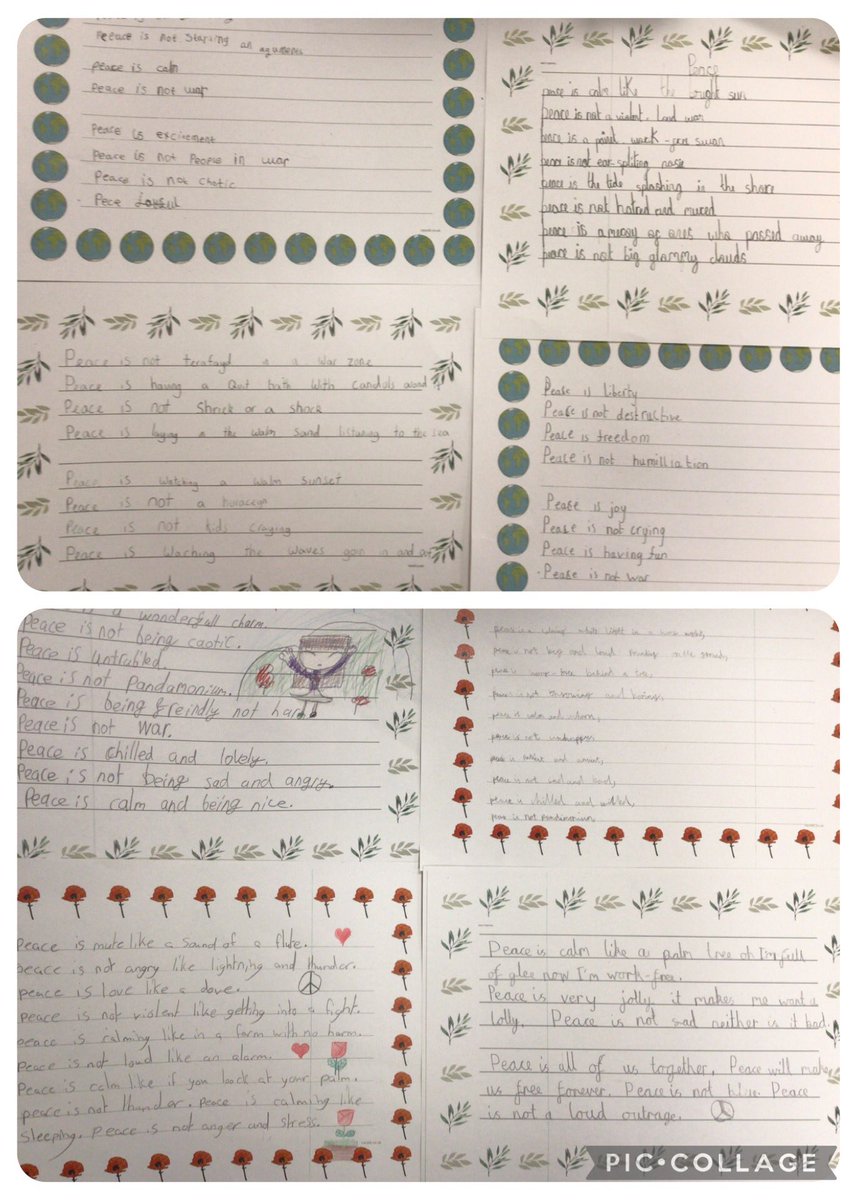 Peeace is not Starving an arguments
peace is calm
Peace is not war
Peace is excitement
Peace is not People in war
Peace is not chotic
Pece Joyful
Peace
peace is calm like the bright sun
peace is not a violent, loud war
peace is a work-free swan
peace is not ear-spliting nosie
peace is the tide splashing in the shore
peace is not hatred and
peace is a of ones who passed away
peace is not big glommy clouds
Peace is not terafayd in a war zone
Peace is having a Quit bath with candols around
Peace is not Shriek or a shock
Peace is laying in the walm sand listuning to the sea
Peace is watching a walm sunset
Peace is not a
Peace is not kids craying
Peace is Waching the waves goin in and out
Pease is liberty
Pease is not destructive
Pease is freedom
Pease is not humilliation
Pease is joy
Pease is not crying
Peace is having fun
Pease is not war
a wonderfull charm.
Peace is not being caotic.
Peace is untrubled.
Peace is not Pandamonium.
Peace is being freindly not harm
Peace is not war.
Peace is chilled and lovely.
Peace is not being sad and angry.
Peace is calm and being nice.
peace is a white light in a
peace is not big and loud
peace is behind a
peace is not and
peace is calm and
peace is not unhappy
peace is and
peace is not sad and bad,
peace is chilled and
peace is not pandimonium
Peace is mute like a sound of a flute.
peace is not angry like lightning and thunder.
peace is love like a dove.
peace is not violent like getting into a fight.
peace is calming like in a farm with no harm.
Peace is not loud like an alarm.
Peace is calm like if you look at your palm.
peace is not thunder. Peace is calming like
sleeping. Peace is not anger and stress.
Peace is calm like a palm tree oh I'm full
of glee now I'm work-free.
Peace is very jolly it makes me want a
lolly. Peace is not sad neither is it bad.
Peace is all of us together, Peace will make
us free forever. Peace is not blue. Peace
is not a loud outrage.
PIC•COLLAGE